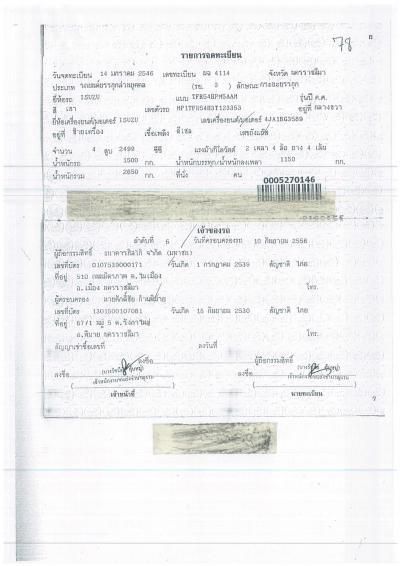 78
รายการจดทะเบียน
วันจดทะเบียน 14 มกราคม 2546 เลขทะเบียน ผจ 4114 จังหวัด นครราชสีมา
ประเภท รถยนต์บรรทุกส่วนบุคคล (รย. 3 ) ลักษณะ กระบะบรรทุก
ยี่ห้อรถ ISUZU แบบ TFR54HPM5AAM รุ่นปี ค.ศ.
สี เทา เลขตัวรถ MP1TFR54H3T123353 อยู่ที่ กลางขวา
ยี่ห้อเครื่องยนต์/มอเตอร์ ISUZU เลขเครื่องยนต์/มอเตอร์ 4JA1BG3589
อยู่ที่ ซ้ายเครื่อง เชื้อเพลิง ดีเซล เลขถังแก๊ส
จำนวน 4 สูบ 2499 ซีซี แรงม้า/กิโลวัตต์ 2 เพลา 4 ล้อ ยาง 4 เส้น
น้ำหนักรถ 1500 กก. น้ำหนักบรรทุก/น้ำหนักลงเพลา 1150 กก.
น้ำหนักรวม 2650 กก. ที่นั่ง คน
0005270146
เจ้าของรถ
ลำดับที่ 6 วันที่ครอบครองรถ 10 กันยายน 2556
ผู้ถือกรรมสิทธิ์ ธนาคารทิสโก้ จำกัด (มหาชน)
เลขที่บัตร 0107539000171 วันเกิด 1 กรกฎาคม 2539 สัญชาติ ไทย
ที่อยู่ 510 ถนนมิตรภาพ ต.ในเมือง
อ.เมือง นครราชสีมา โทร.
ผู้ครอบครอง
เลขที่บัตร 1301500107081 วันเกิด 15 กันยายน 2530 สัญชาติ ไทย
ที่อยู่ 67/1 หมู่ 5 ต.รังกาใหญ่
อ.พิมาย นครราชสีมา โทร.
สัญญาเช่าซื้อเลขที่ ลงวันที่
ลงชื่อ ผู้ถือกรรมสิทธิ์
ลงชื่อ ลงชื่อ
เจ้าหน้าที่ นายทะเบียน
7